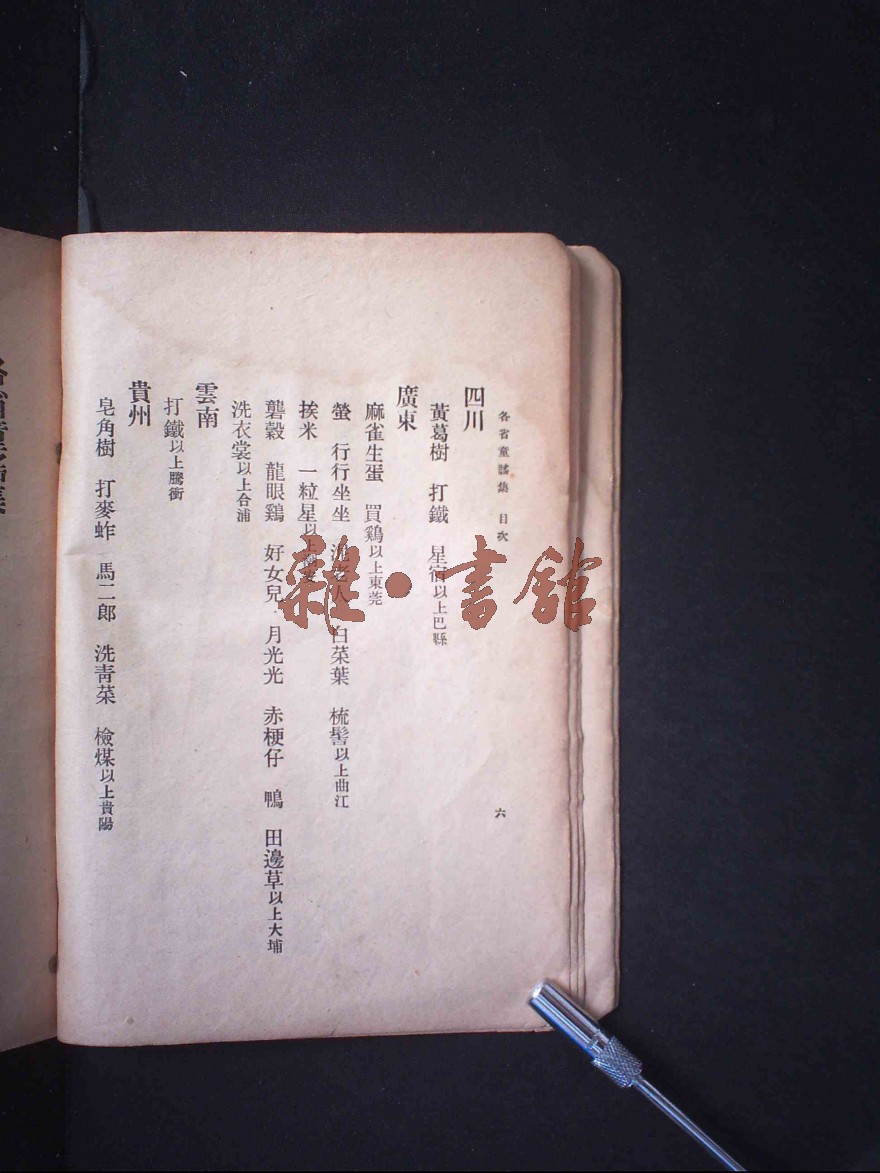 各省童謠集 目次
六
四川
黃葛樹 打鐵 星宿以上巴縣
廣東
麻雀生蛋 買鷄以上東莞
螢 行行坐坐 老人 白菜葉 梳髻以上曲江
挨米 一粒星以上
礱穀 龍眼鷄 好女兒 月光光 赤梗仔 鴨 田邊草以上大埔
洗衣裳以上合浦
雲南
打鐵以上騰衝
貴州
皂角樹 打麥蚱 馬二郎 洗靑菜 檢煤以上貴陽
雜·書館